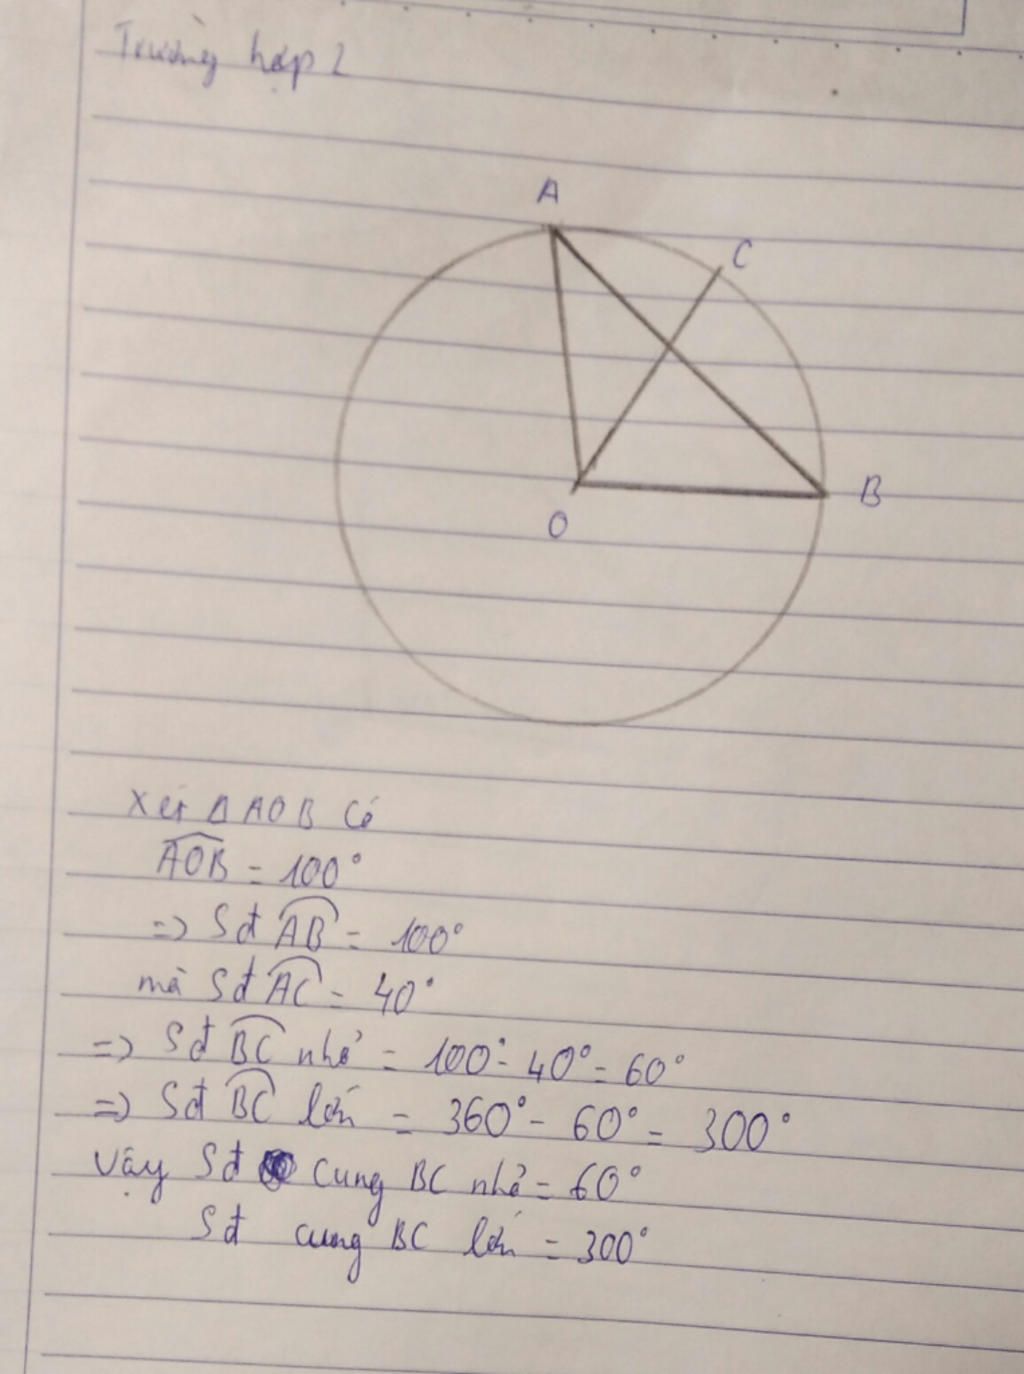 Trường hợp 2
A
C
B
O
Xét Δ AOB có
AOB = 100°
=> Sđ AB = 100°
mà Sđ AC = 40°
=> Sđ BC nhỏ = 100° - 40° = 60°
=> Sđ BC lớn = 360° - 60° = 300°
Vậy Sđ cung BC nhỏ = 60°
Sđ cung BC lớn = 300°